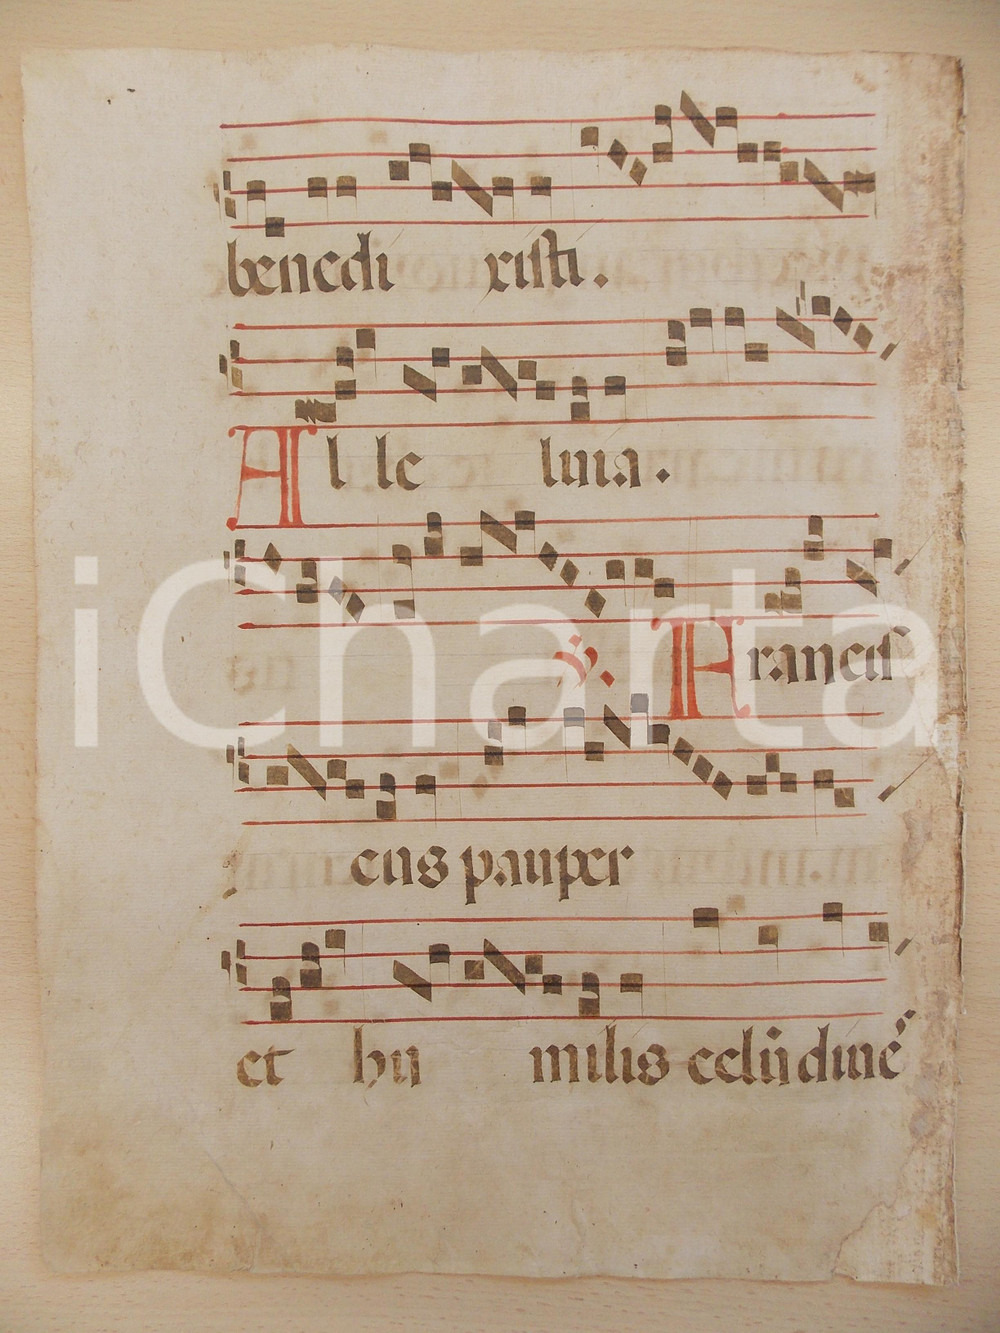 benedi xisti.
Al le luia.
℣. Francis
cus pauper
et hu milis celū diue
iCharta